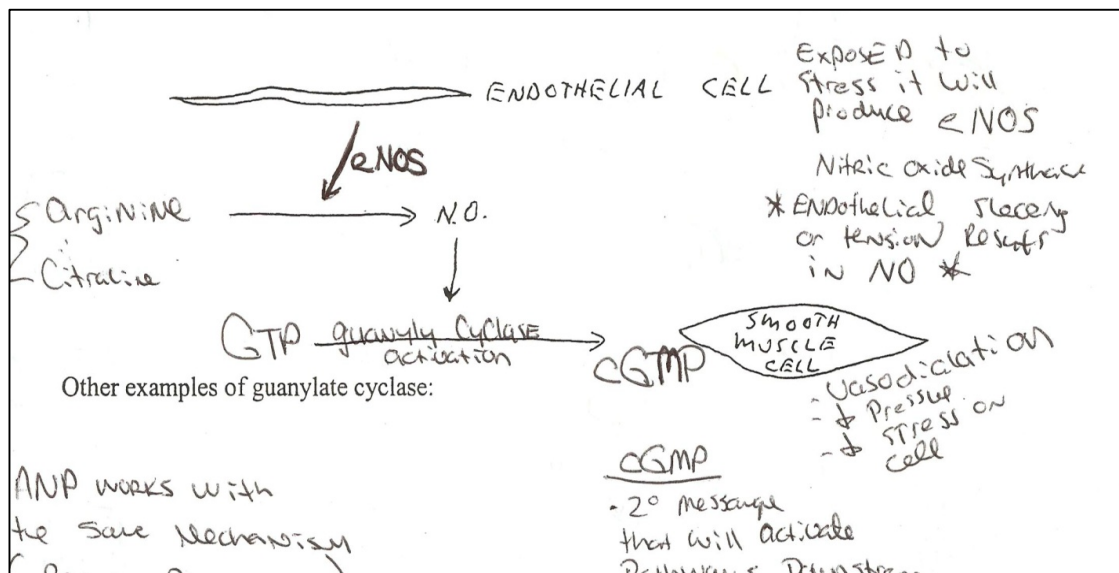 ENDOTHELIAL CELL
EXPOSED to
stress it will
produce eNOS
Nitric oxide Synthase
* ENDothelial
or tension Results
in NO *
eNOS
ArgiNiNe
N.O.
Citraline
GTP guanyly Cyclase
activation
cGMP
SMOOTH
MUSCLE
CELL
- Vasodialation
- ↓ Pressure
- ↓ STress ON
cell
Other examples of guanylate cyclase:
ANP works with
the Same Mechanism
cGMP
· 2° message
that will activate
Pathways Downstream